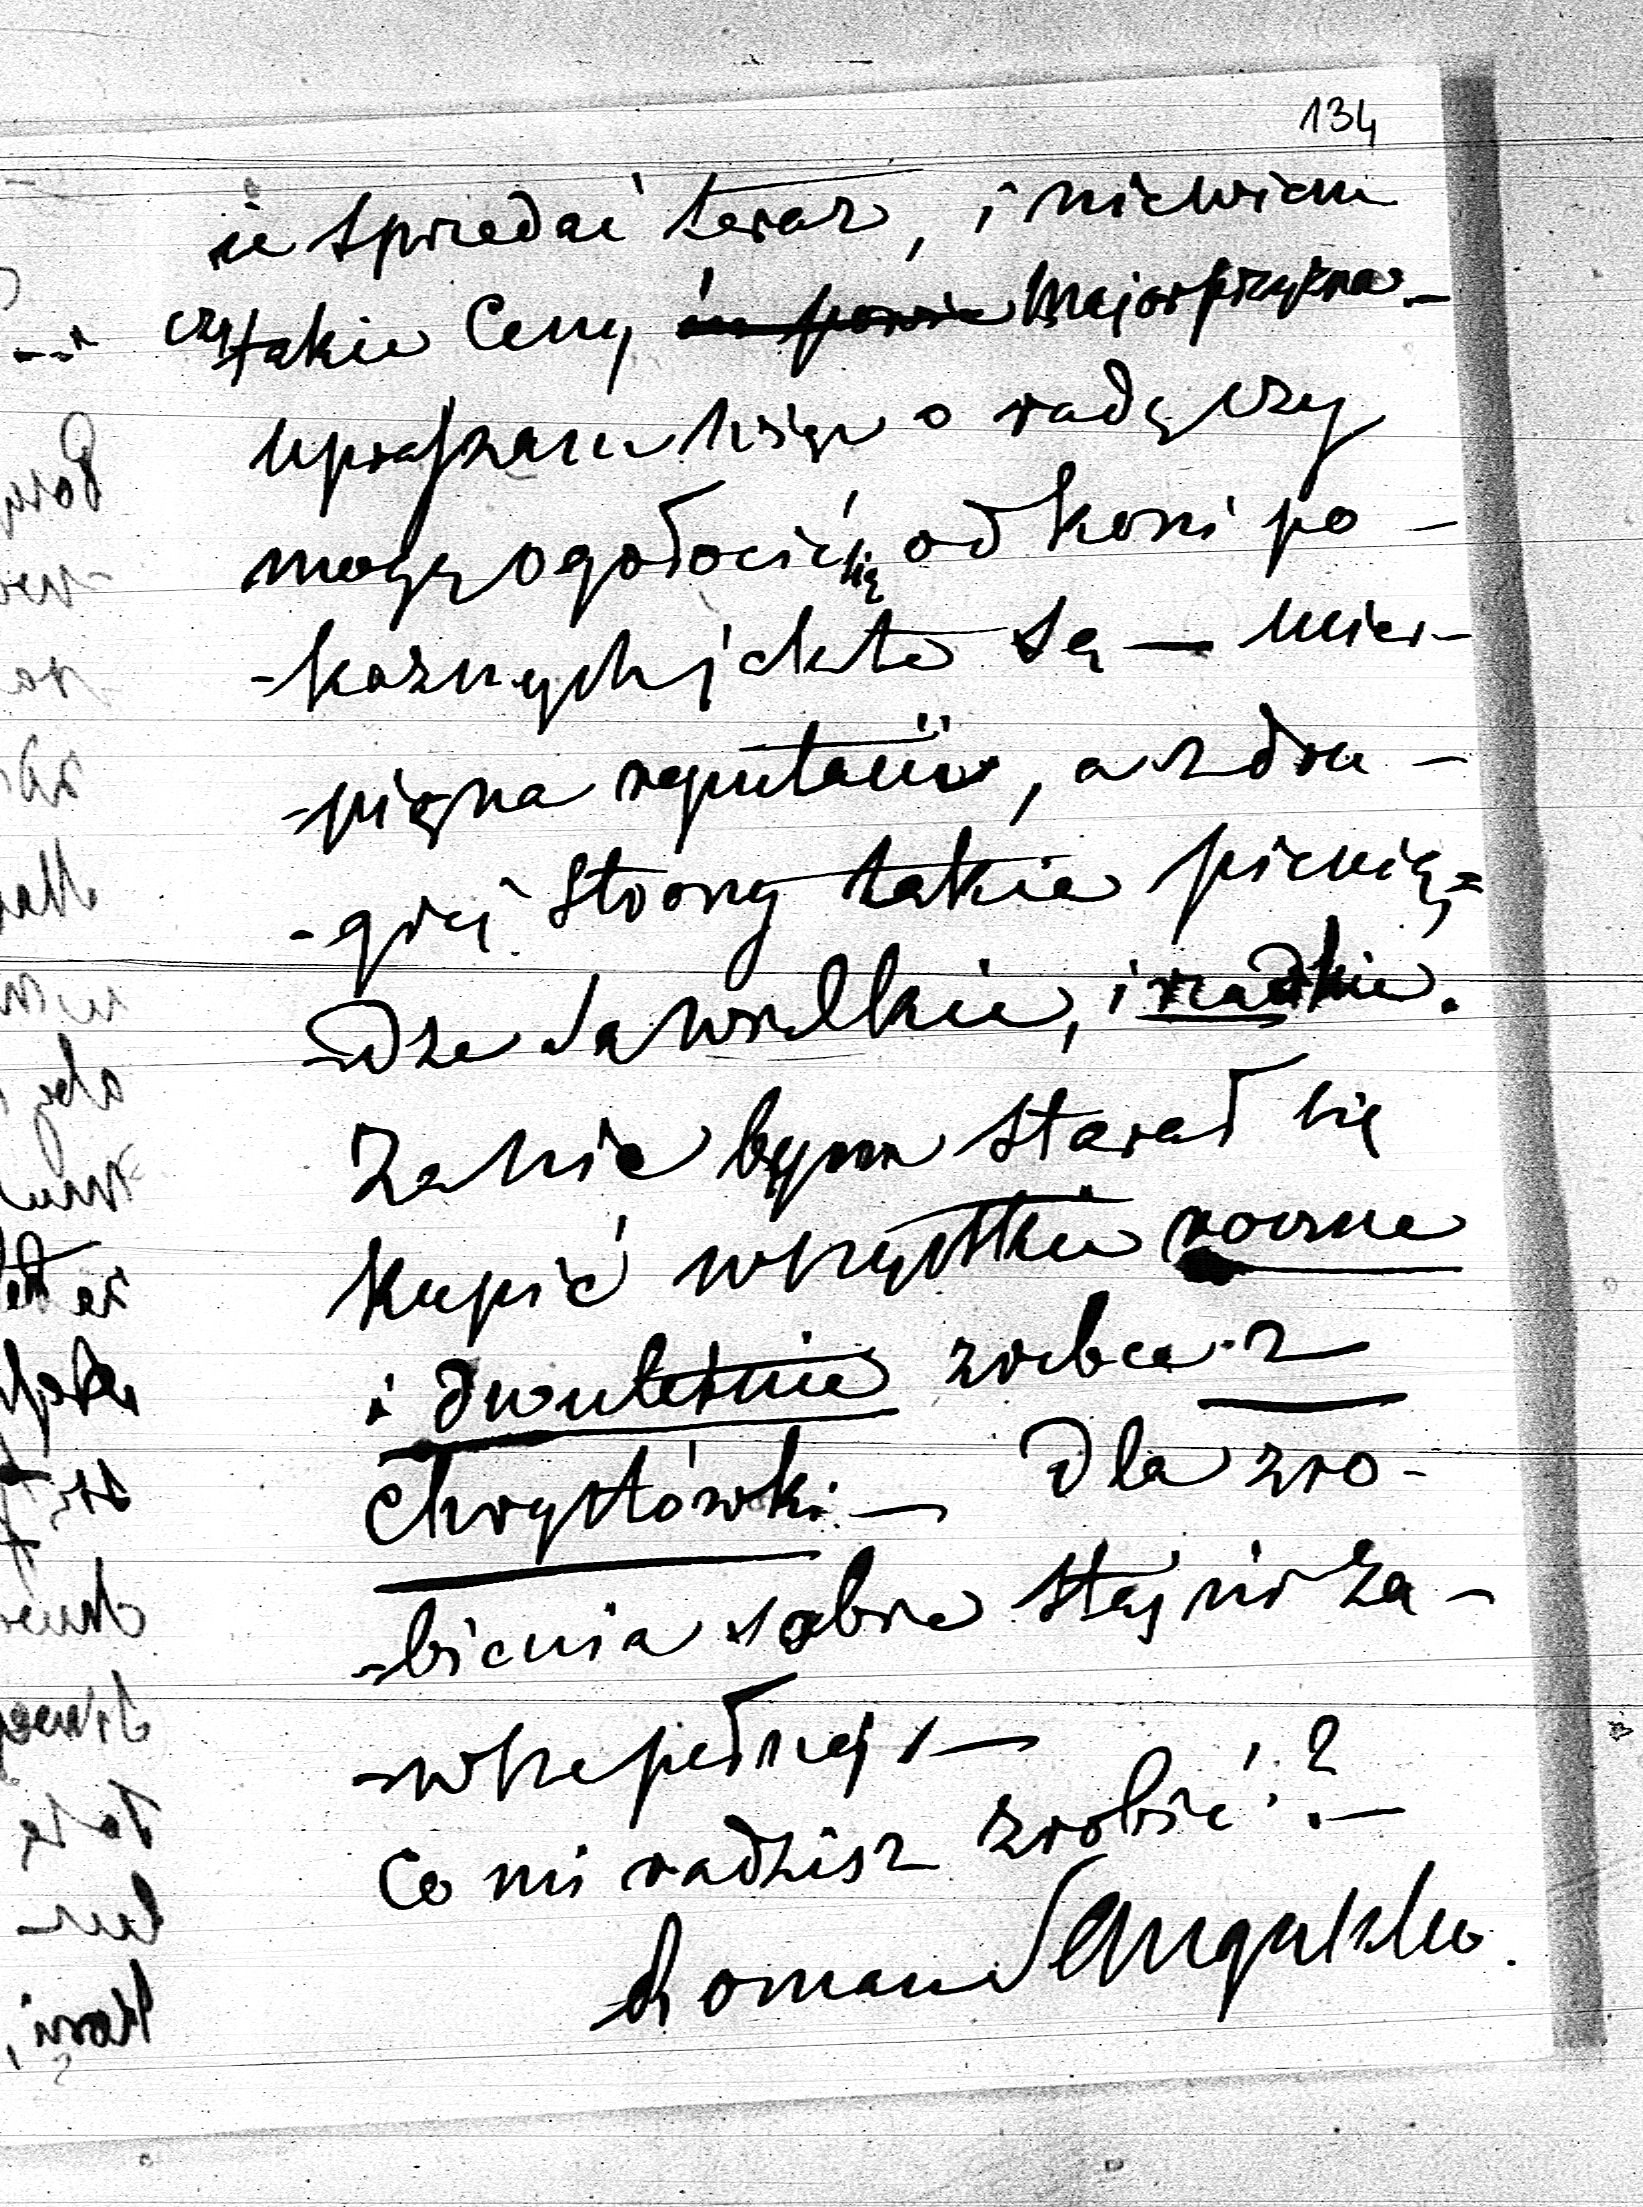 134
je sprzedać teraz, i niewiem
czy takie Ceny Major przyzna –
upraszam więc o radę czy
mogę ogołocić się od koni po –
-kaznych, jakte są — uier-
-piękna reputacii, a z dru –
-giej Strony takie pienią=
-dze sa wielkie, i rzadkie.
Zanic bym starał się
kupić wszystkie roczne
i dwuletnie zrebca z
Chrystówki — Dla zro-
-bienia sobie stajni Za –
-wszepełnej, —
Co mi radzisz zrobić? —
Roman Sanguszko.